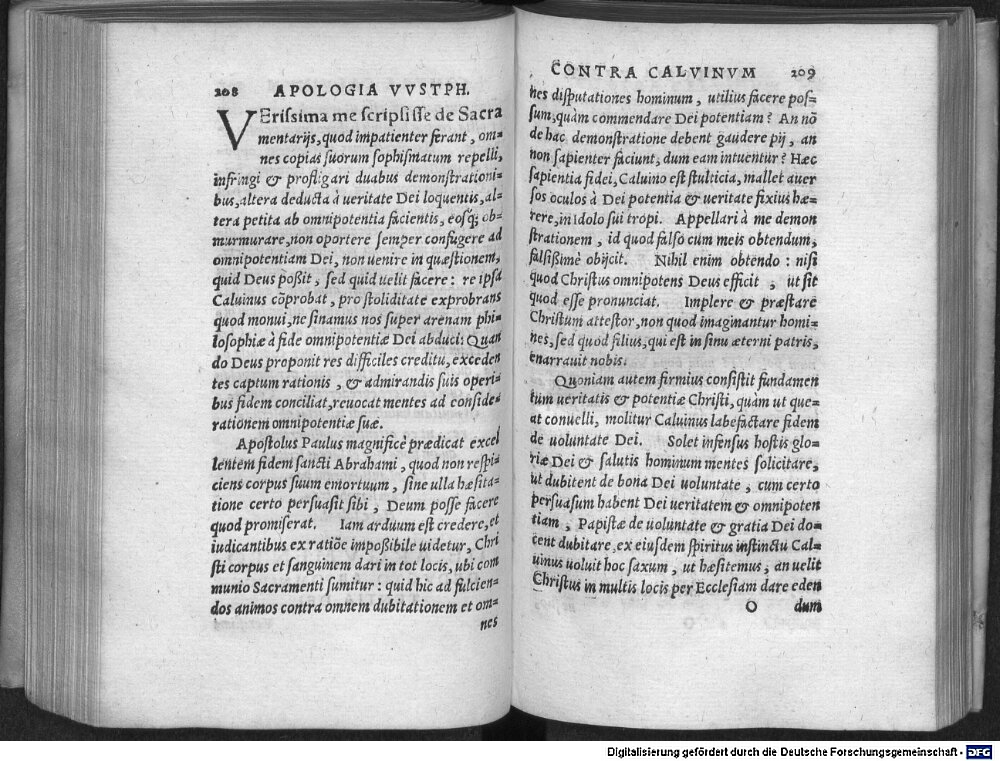 208 APOLOGIA VVSTPH.
VErissima me scripsisse de Sacra
mentarijs, quod impatienter ferant, om=
nes copias suorum sophismatum repelli,
infringi & profligari duabus demonstrationi=
bus, altera deducta à ueritate Dei loquentis, al=
tera petita ab omnipotentia facientis, eosq; ob=
murmurare, non oportere semper confugere ad
omnipotentiam Dei, non uenire in quæstionem,
quid Deus poßit, sed quid uelit facere: re ipsa
Caluinus cōprobat, pro stoliditate exprobrans
quod monui, ne sinamus nos super arenam phi=
losophiæ à fide omnipotentiæ Dei abduci: Quan
do Deus proponit res difficiles creditu, exceden
tes captum rationis, & admirandis suis operi=
bus fidem conciliat, reuocat mentes ad conside=
rationem omnipotentiæ suæ.
Apostolus Paulus magnificè prædicat excel
lentem fidem sancti Abrahami, quod non respi=
ciens corpus suum emortuum, sine ulla hæsita=
tione certo persuasit sibi, Deum posse facere
quod promiserat. Iam arduum est credere, et
iudicantibus ex ratiōe impoßibile uidetur, Chri
sti corpus et sanguinem dari in tot locis, ubi com
munio Sacramenti sumitur: quid hic ad fulcien=
dos animos contra omnem dubitationem et om=
nes
CONTRA CALVINVM 209
nes disputationes hominum, utilius facere pos=
sum, quàm commendare Dei potentiam? An nō
de hac demonstratione debent gaudere pij, an
non sapienter faciunt, dum eam intuentur? Hæc
sapientia fidei, Caluino est stulticia, mallet auer
sos oculos à Dei potentia & ueritate fixius hæ=
rere, in idolo sui tropi. Appellari à me demon
strationem, id quod falso cum meis obtendum,
falsißimè obijcit. Nihil enim obtendo: nisi
quod Christus omnipotens Deus efficit, ut sit
quod esse pronunciat. Implere & præstare
Christum attestor, non quod imaginantur homi=
nes, sed quod filius, qui est in sinu æterni patris,
enarrauit nobis.
Quoniam autem firmius consistit fundamen
tum ueritatis & potentiæ Christi, quàm ut que=
at conuelli, molitur Caluinus labefactare fidem
de uoluntate Dei. Solet infensus hostis glo=
riæ Dei & salutis hominum mentes solicitare,
ut dubitent de bona Dei uoluntate, cum certo
persuasum habent Dei ueritatem & omnipoten
tiam, Papistæ de uoluntate & gratia Dei do=
cent dubitare, ex eiusdem spiritus instinctu Cal=
uinus uoluit hoc saxum, ut hæsitemus, an uelit
Christus in multis locis per Ecclesiam dare eden
O dum
Digitalisierung gefördert durch die Deutsche Forschungsgemeinschaft - DFG